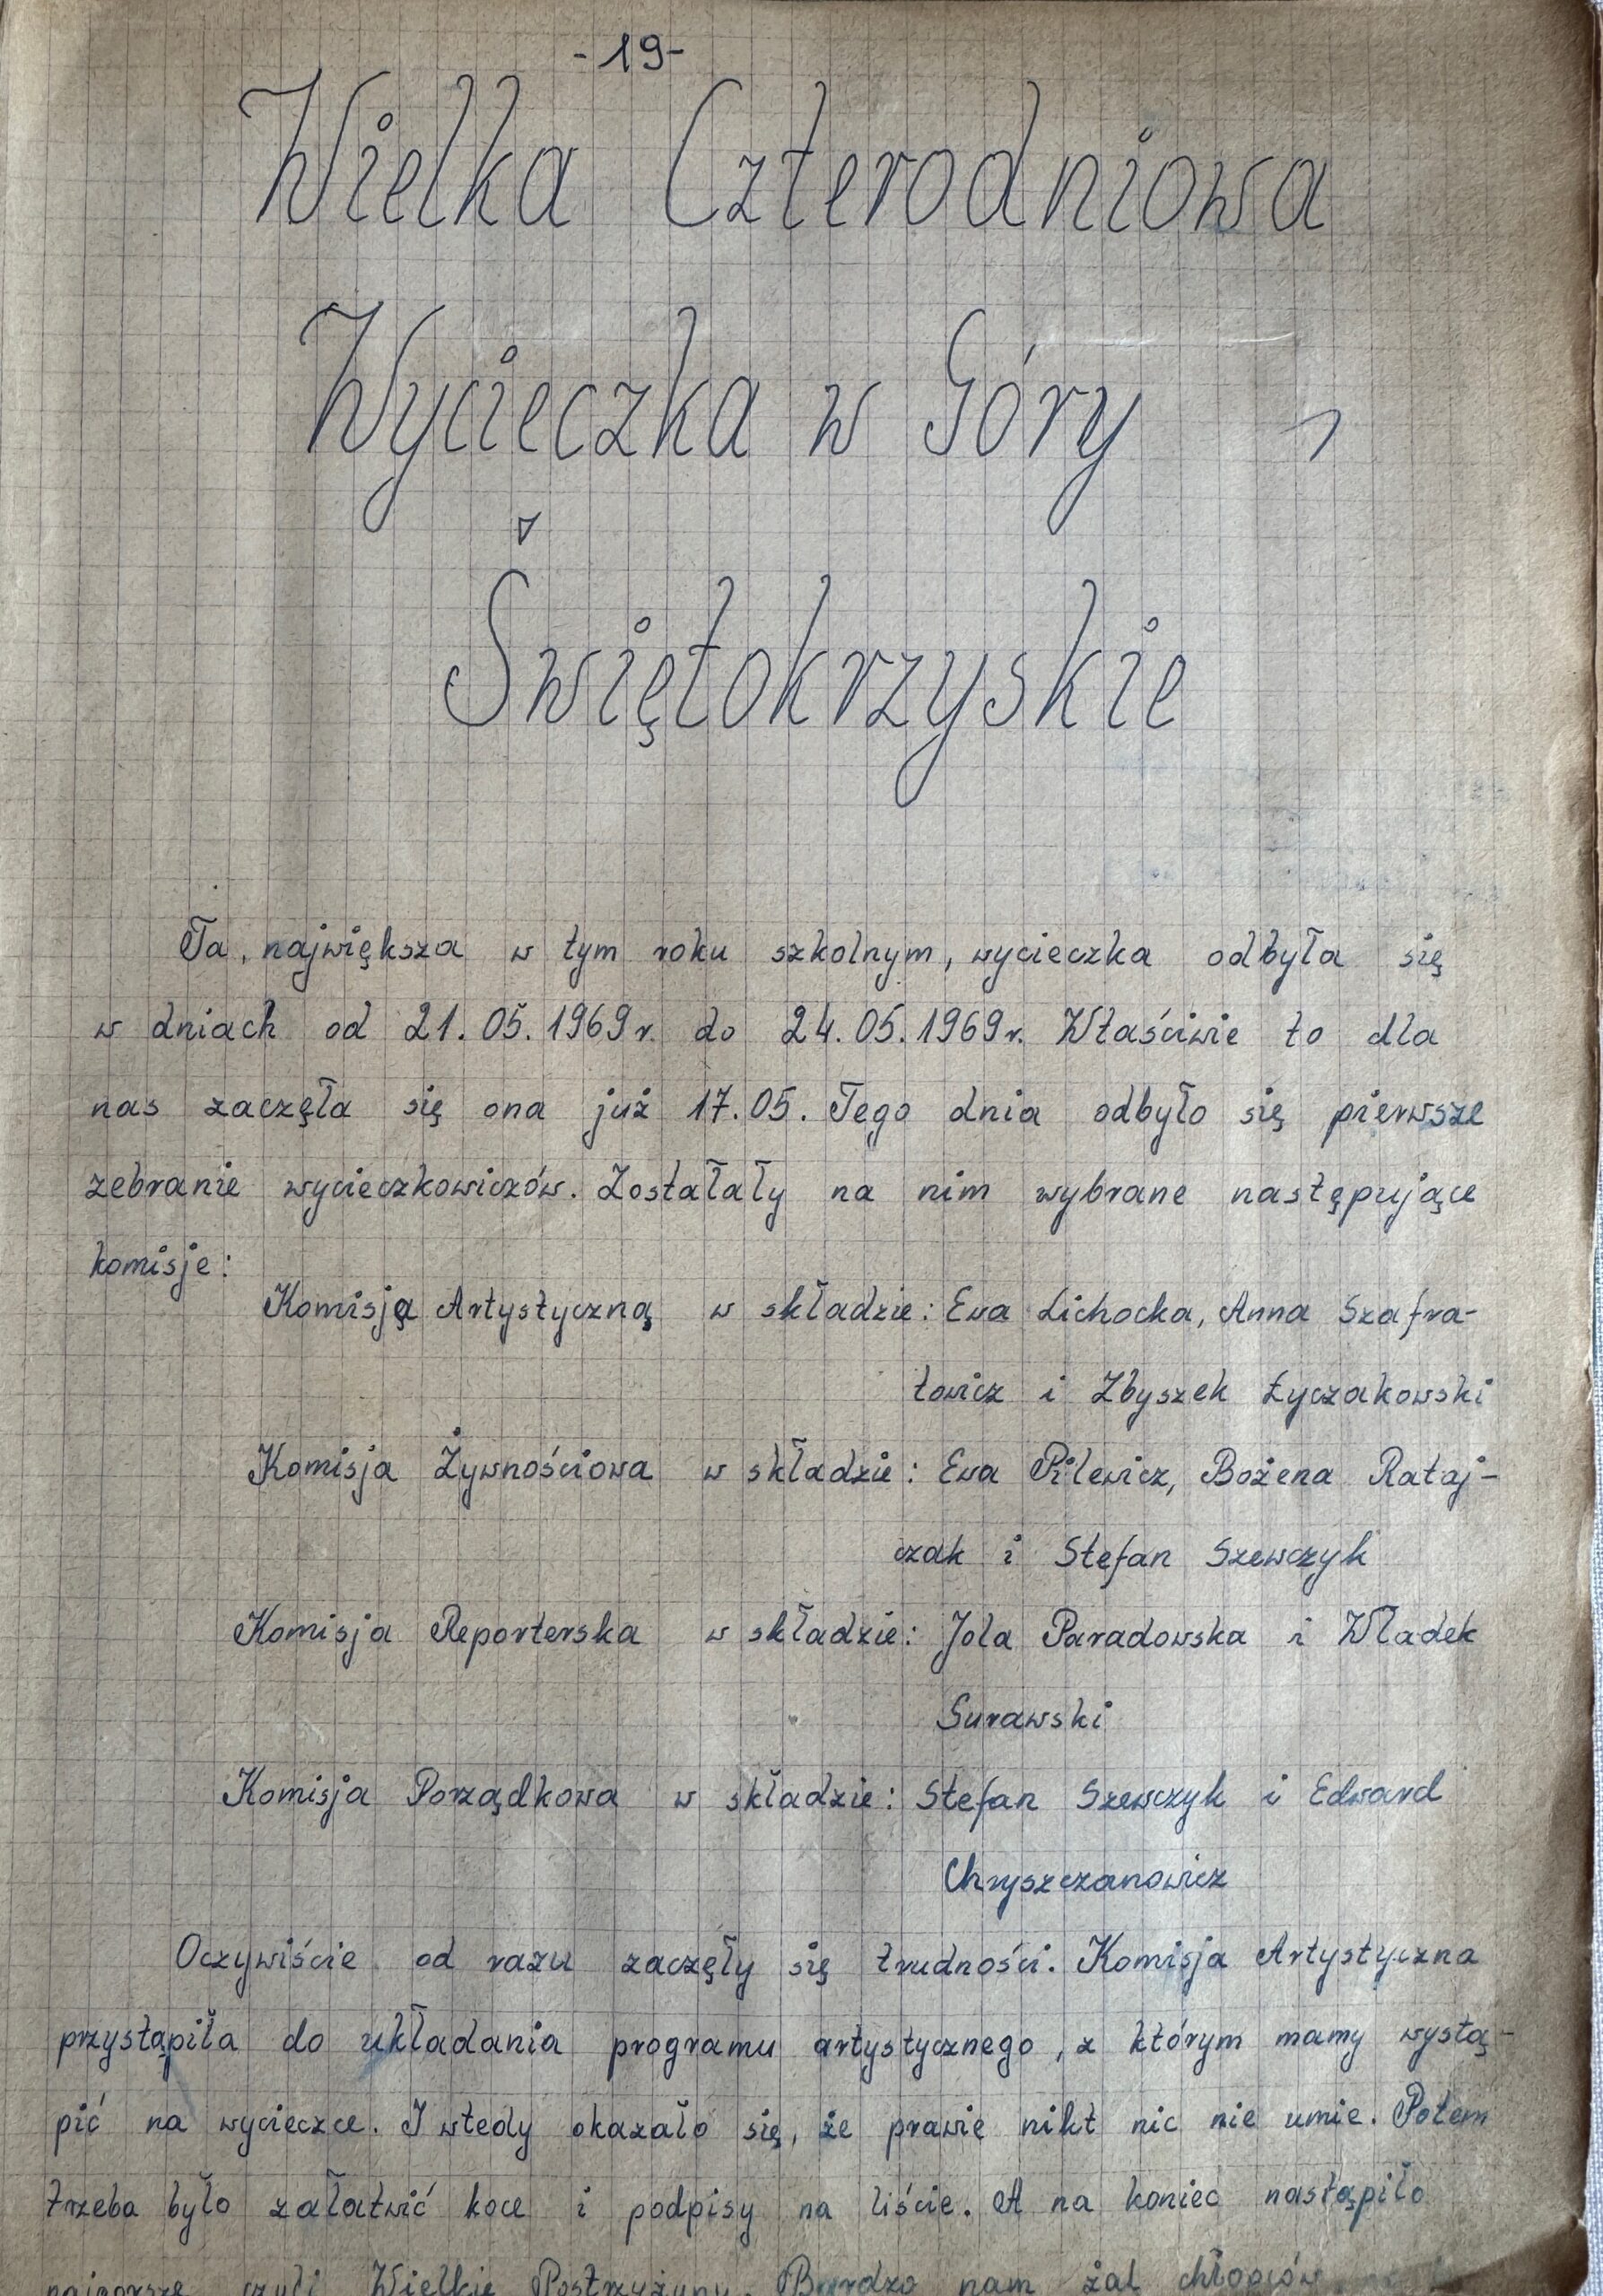 - 19 -
Wielka Czterodniowa
Wycieczka w Góry
Świętokrzyskie
Ta, największa w tym roku szkolnym, wycieczka odbyła się
w dniach od 21.05.1969r. do 24.05.1969r. Właściwie to dla
nas zaczęła się ona już 17.05. Tego dnia odbyło się pierwsze
zebranie wycieczkowiczów. Zostałały na nim wybrane następujące
komisje:
Komisją Artystyczną w składzie: Ewa Lichocka, Anna Szafra-
łowicz i Zbyszek Łyczakowski
Komisja Żywnościowa w składzie: Ewa Pilewicz, Bożena Rataj-
czak i Stefan Szewczyk
Komisja Reporterska w składzie: Jola Paradowska i Władek
Surawski
Komisja Porządkowa w składzie: Stefan Szewczyk i Edward
Chryszczanowicz
Oczywiście od razu zaczęły się trudności. Komisja Artystyczna
przystąpiła do układania programu artystycznego, z którym mamy wystą-
pić na wycieczce. I wtedy okazało się, że prawie nikt nic nie umie. Potem
trzeba było załatwić koce i podpisy na liście. A na koniec nastąpiło
najgorsze czyli Wielkie Postrzyżyny. Bardzo nam żal chłopców